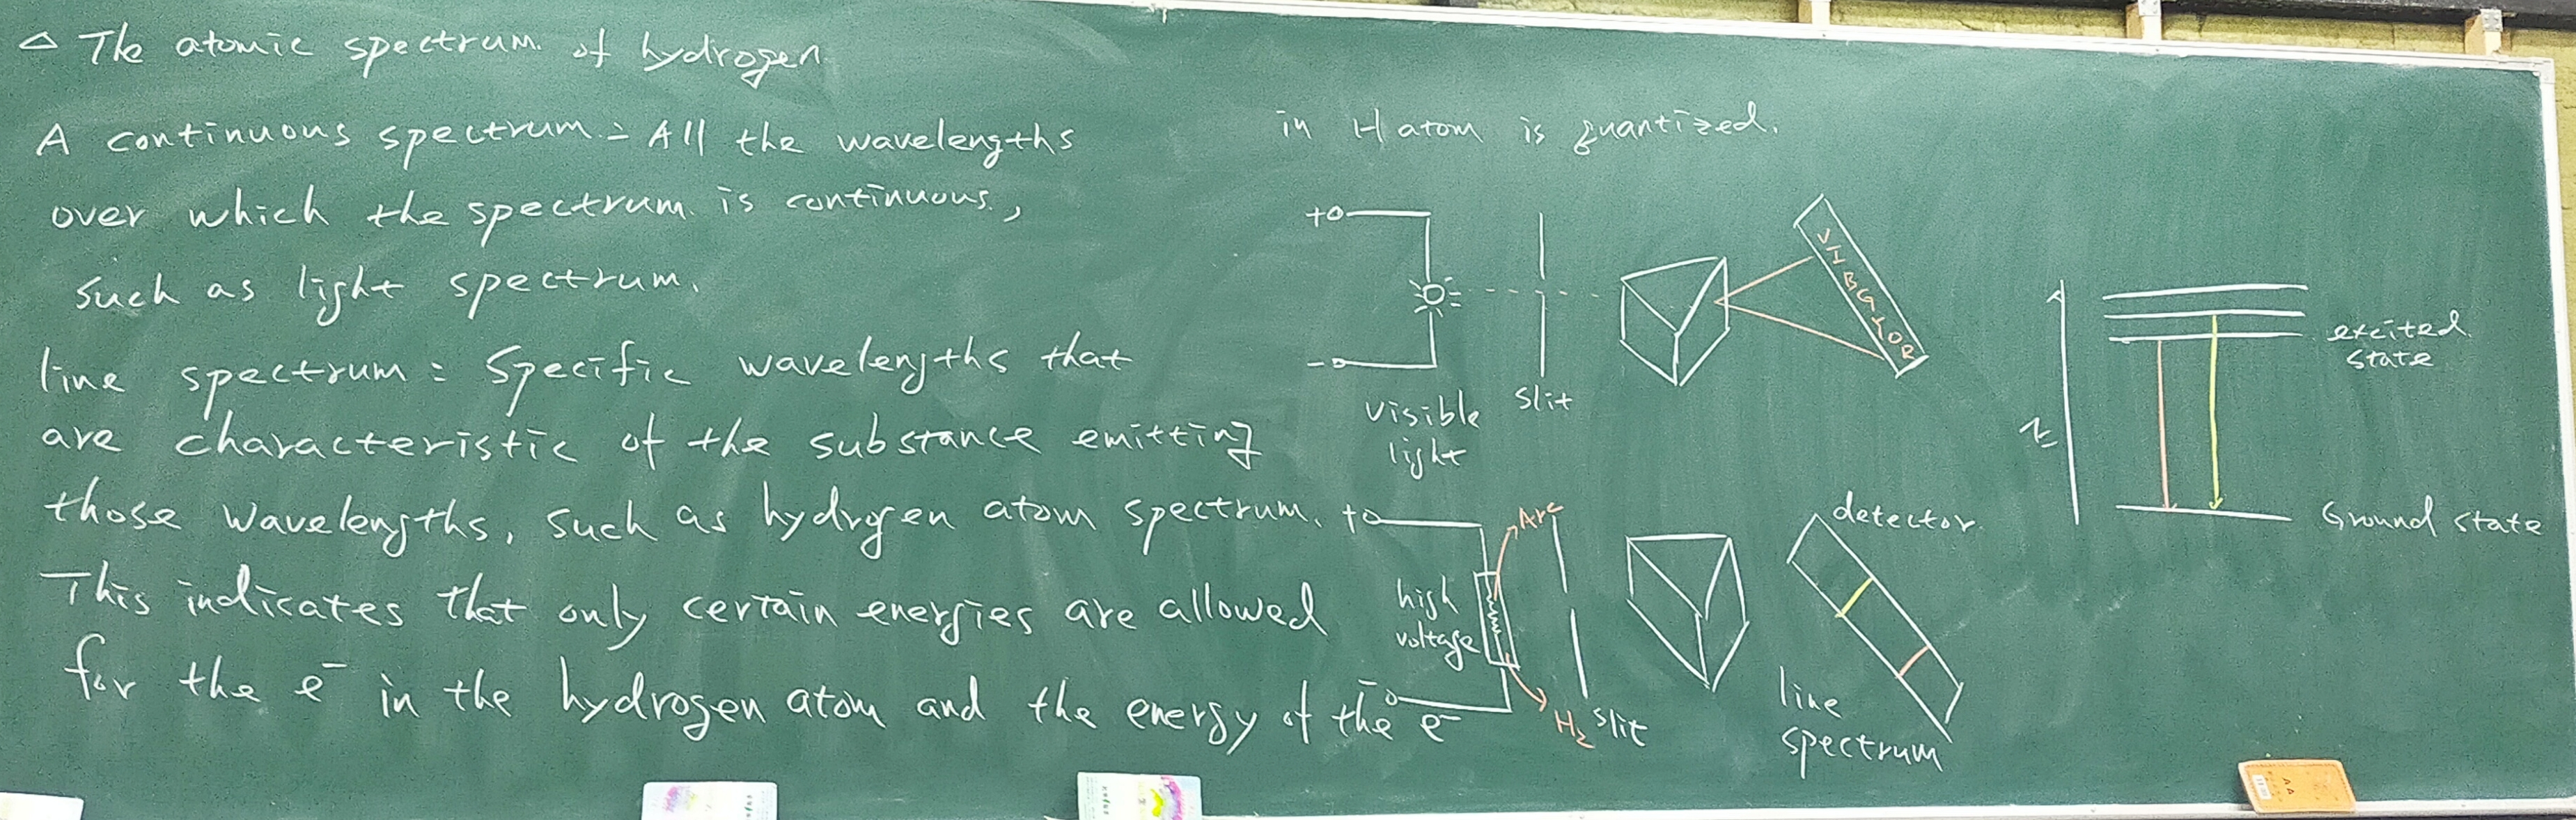 △ The atomic spectrum of hydrogen
A continuous spectrum: All the wavelengths
over which the spectrum is continuous,
such as light spectrum.
line spectrum: Specific wavelengths that
are characteristic of the substance emitting
those wavelengths, such as hydrogen atom spectrum.
This indicates that only certain energies are allowed
for the e⁻ in the hydrogen atom and the energy of the e⁻
in H atom is quantized.
+
−
visible
light
slit
VIBGYOR
+
Arc
high
voltage
−
H₂
slit
detector
line
spectrum
E
excited
state
Ground state